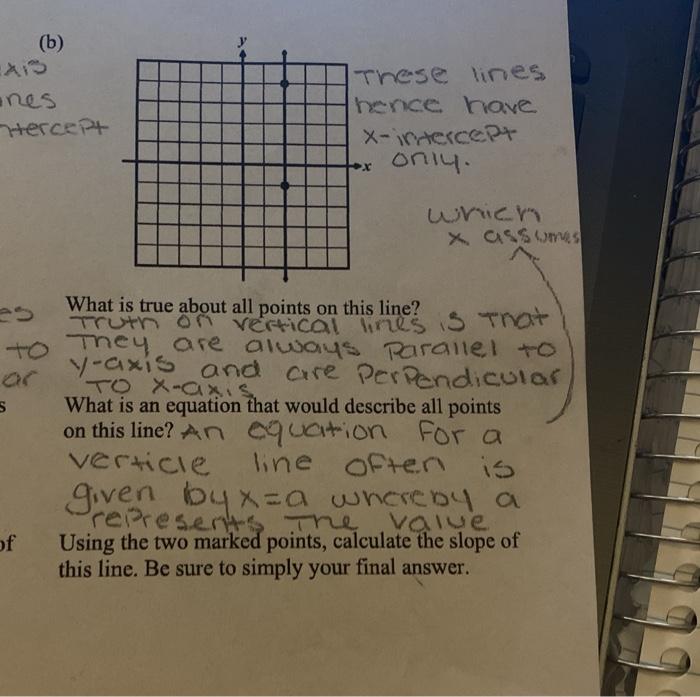 (b)
y
x
These lines
hence have
x-intercept
only.
which
x assumes
What is true about all points on this line?
Truth on vertical lines is that
They are always parallel to
y-axis and are perpendicular
TO x-axis
What is an equation that would describe all points
on this line? An equation for a
verticle line often is
given by x=a whereby a
represents the value
Using the two marked points, calculate the slope of
this line. Be sure to simply your final answer.
to
of